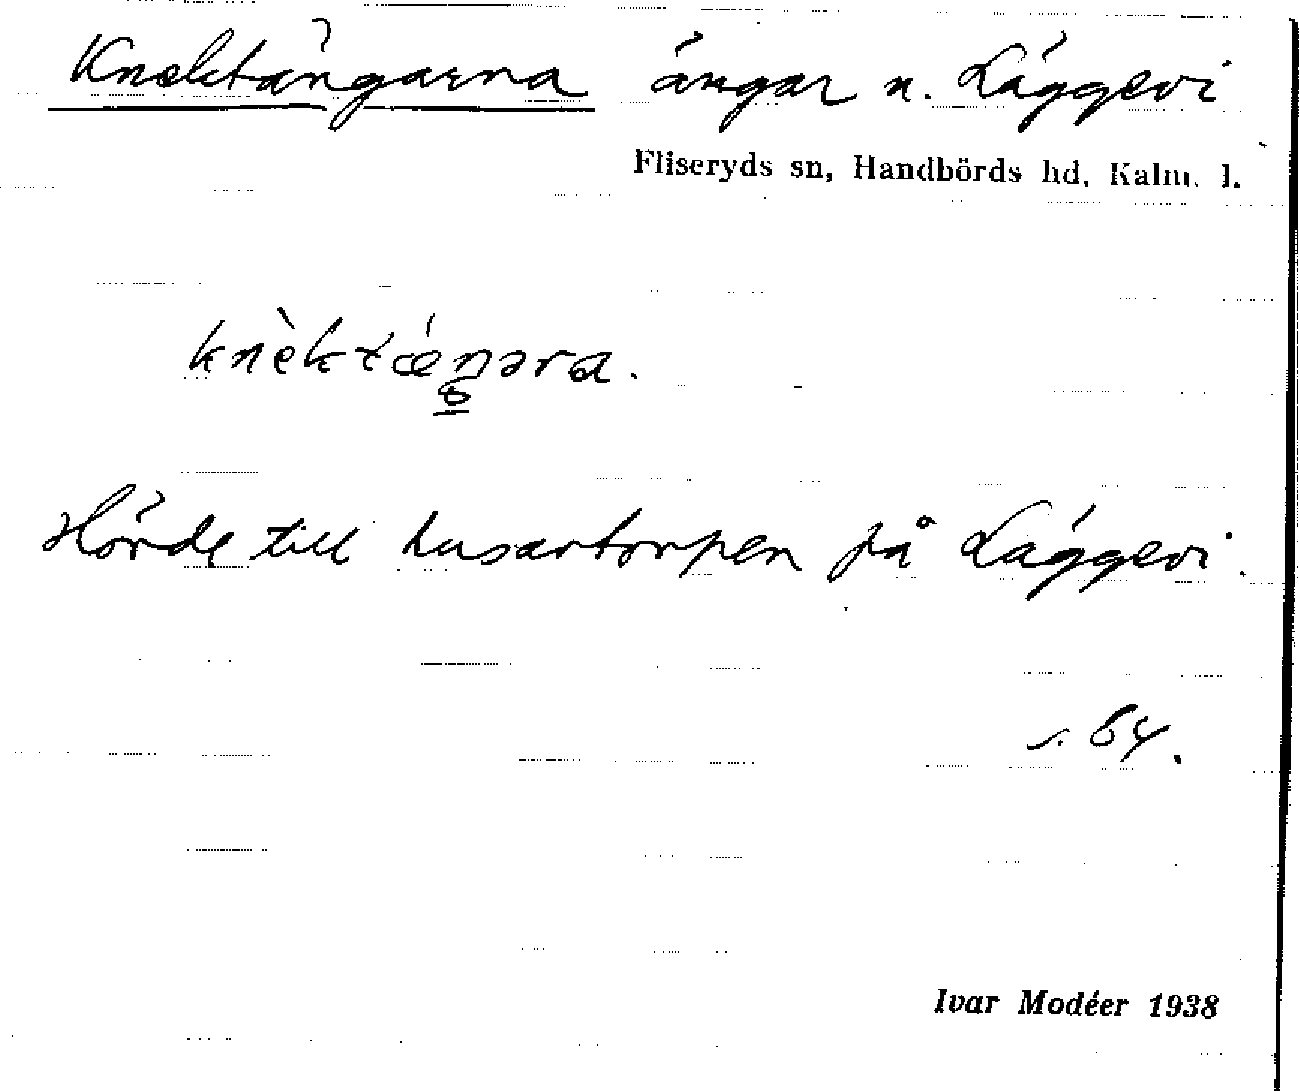 Knektängarna ängar n. Läggevi
Fliseryds sn, Handbörds hd, Kalm. l.
knèktæ´ŋəra.
Hörde till husartorpen på Läggevi.
s. 64.
Ivar Modéer 1938